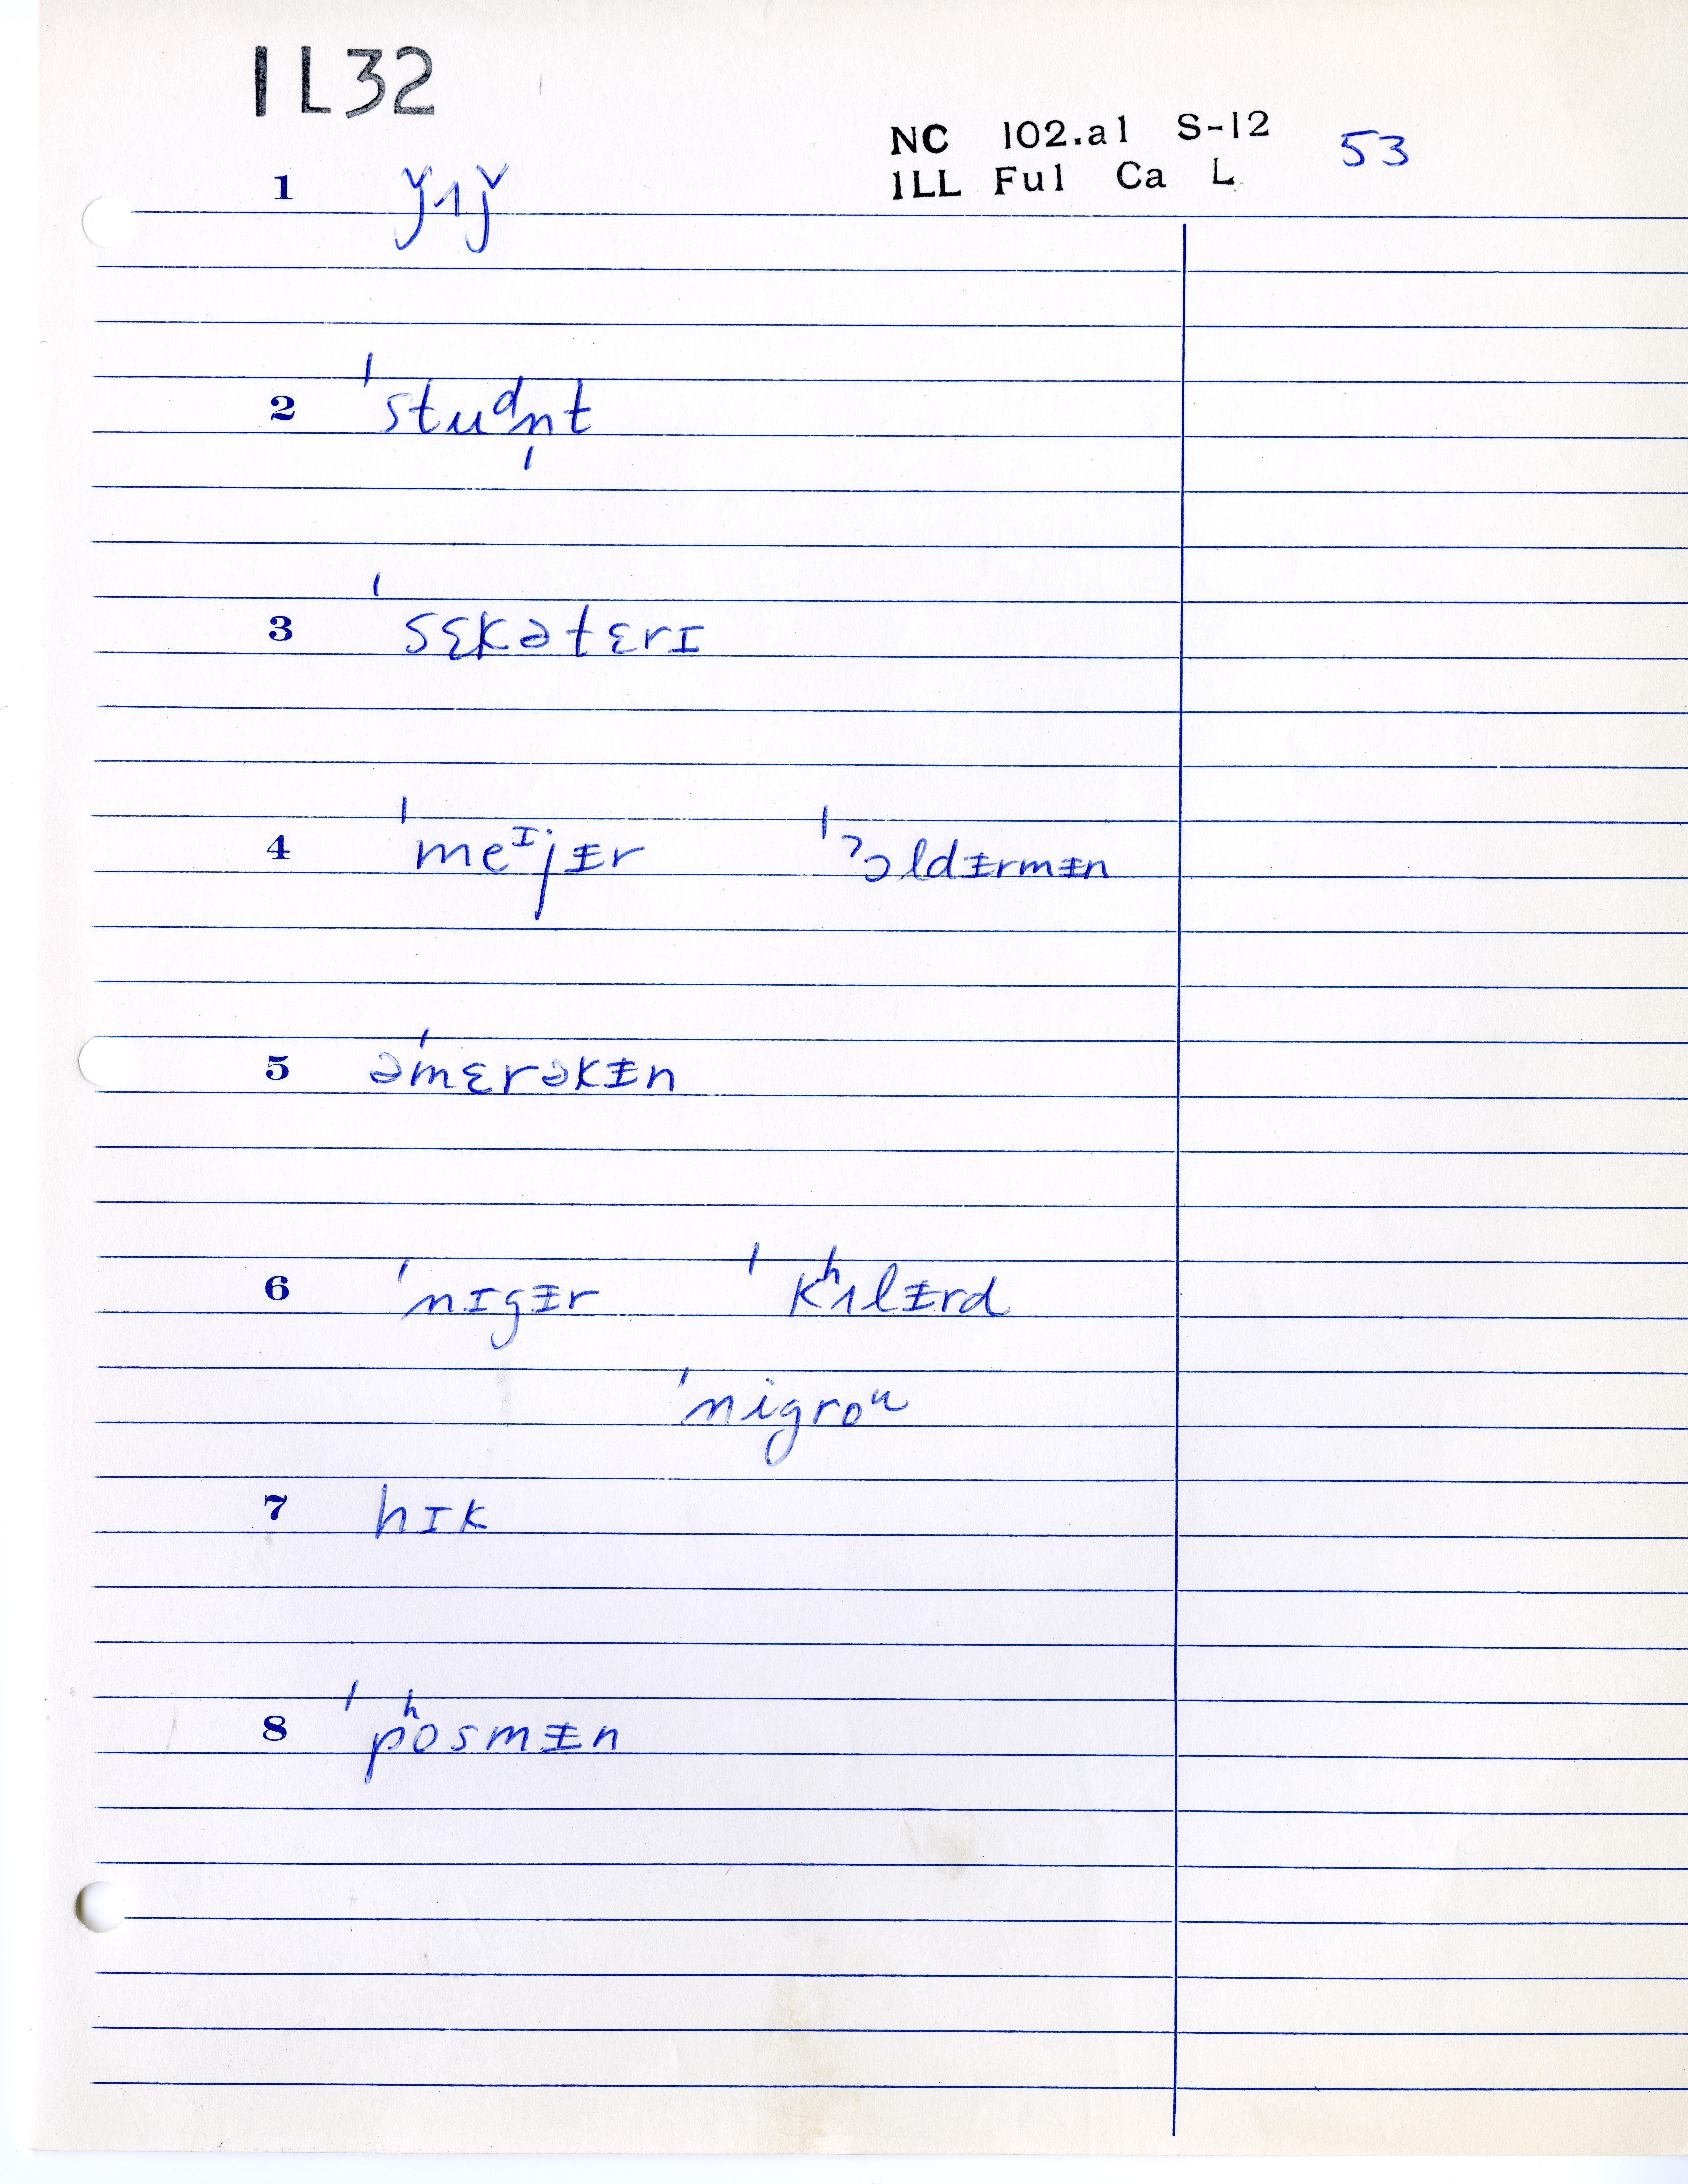 IL32
NC 102.a1 S-12 53
ILL Ful Ca L
1 ǰʌǰ
2 ˈstuᵈn̩t
3 ˈsɛkətɛrɪ
4 ˈmeᴵjᵻr ˈʔɔldᵻrmᵻn
5 əˈmɛrəkᵻn
6 ˈnɪgᵻr ˈkʰʌlᵻrd
ˈnigroᵘ
7 hɪk
8 ˈpʰosmᵻn